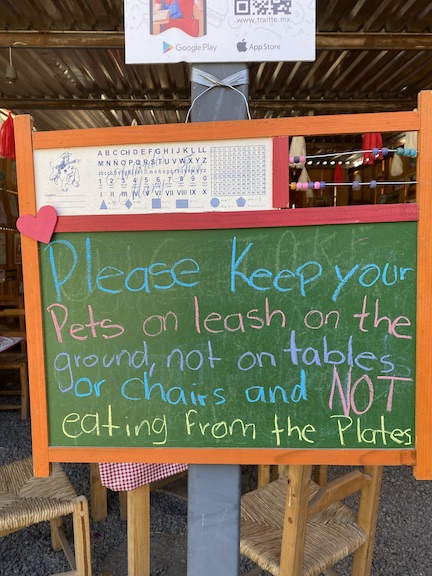 www.traitte.mx
Google Play App Store
A B C C H D E F G H I J K L L L
M N Ñ O P Q R S T U V W X Y Z
1 2 3 4 5 6 7 8 9 0
I II III IV V VI VII VIII IX X
Please Keep your
Pets on leash on the
ground, not on tables
or chairs and NOT
eating from the Plates